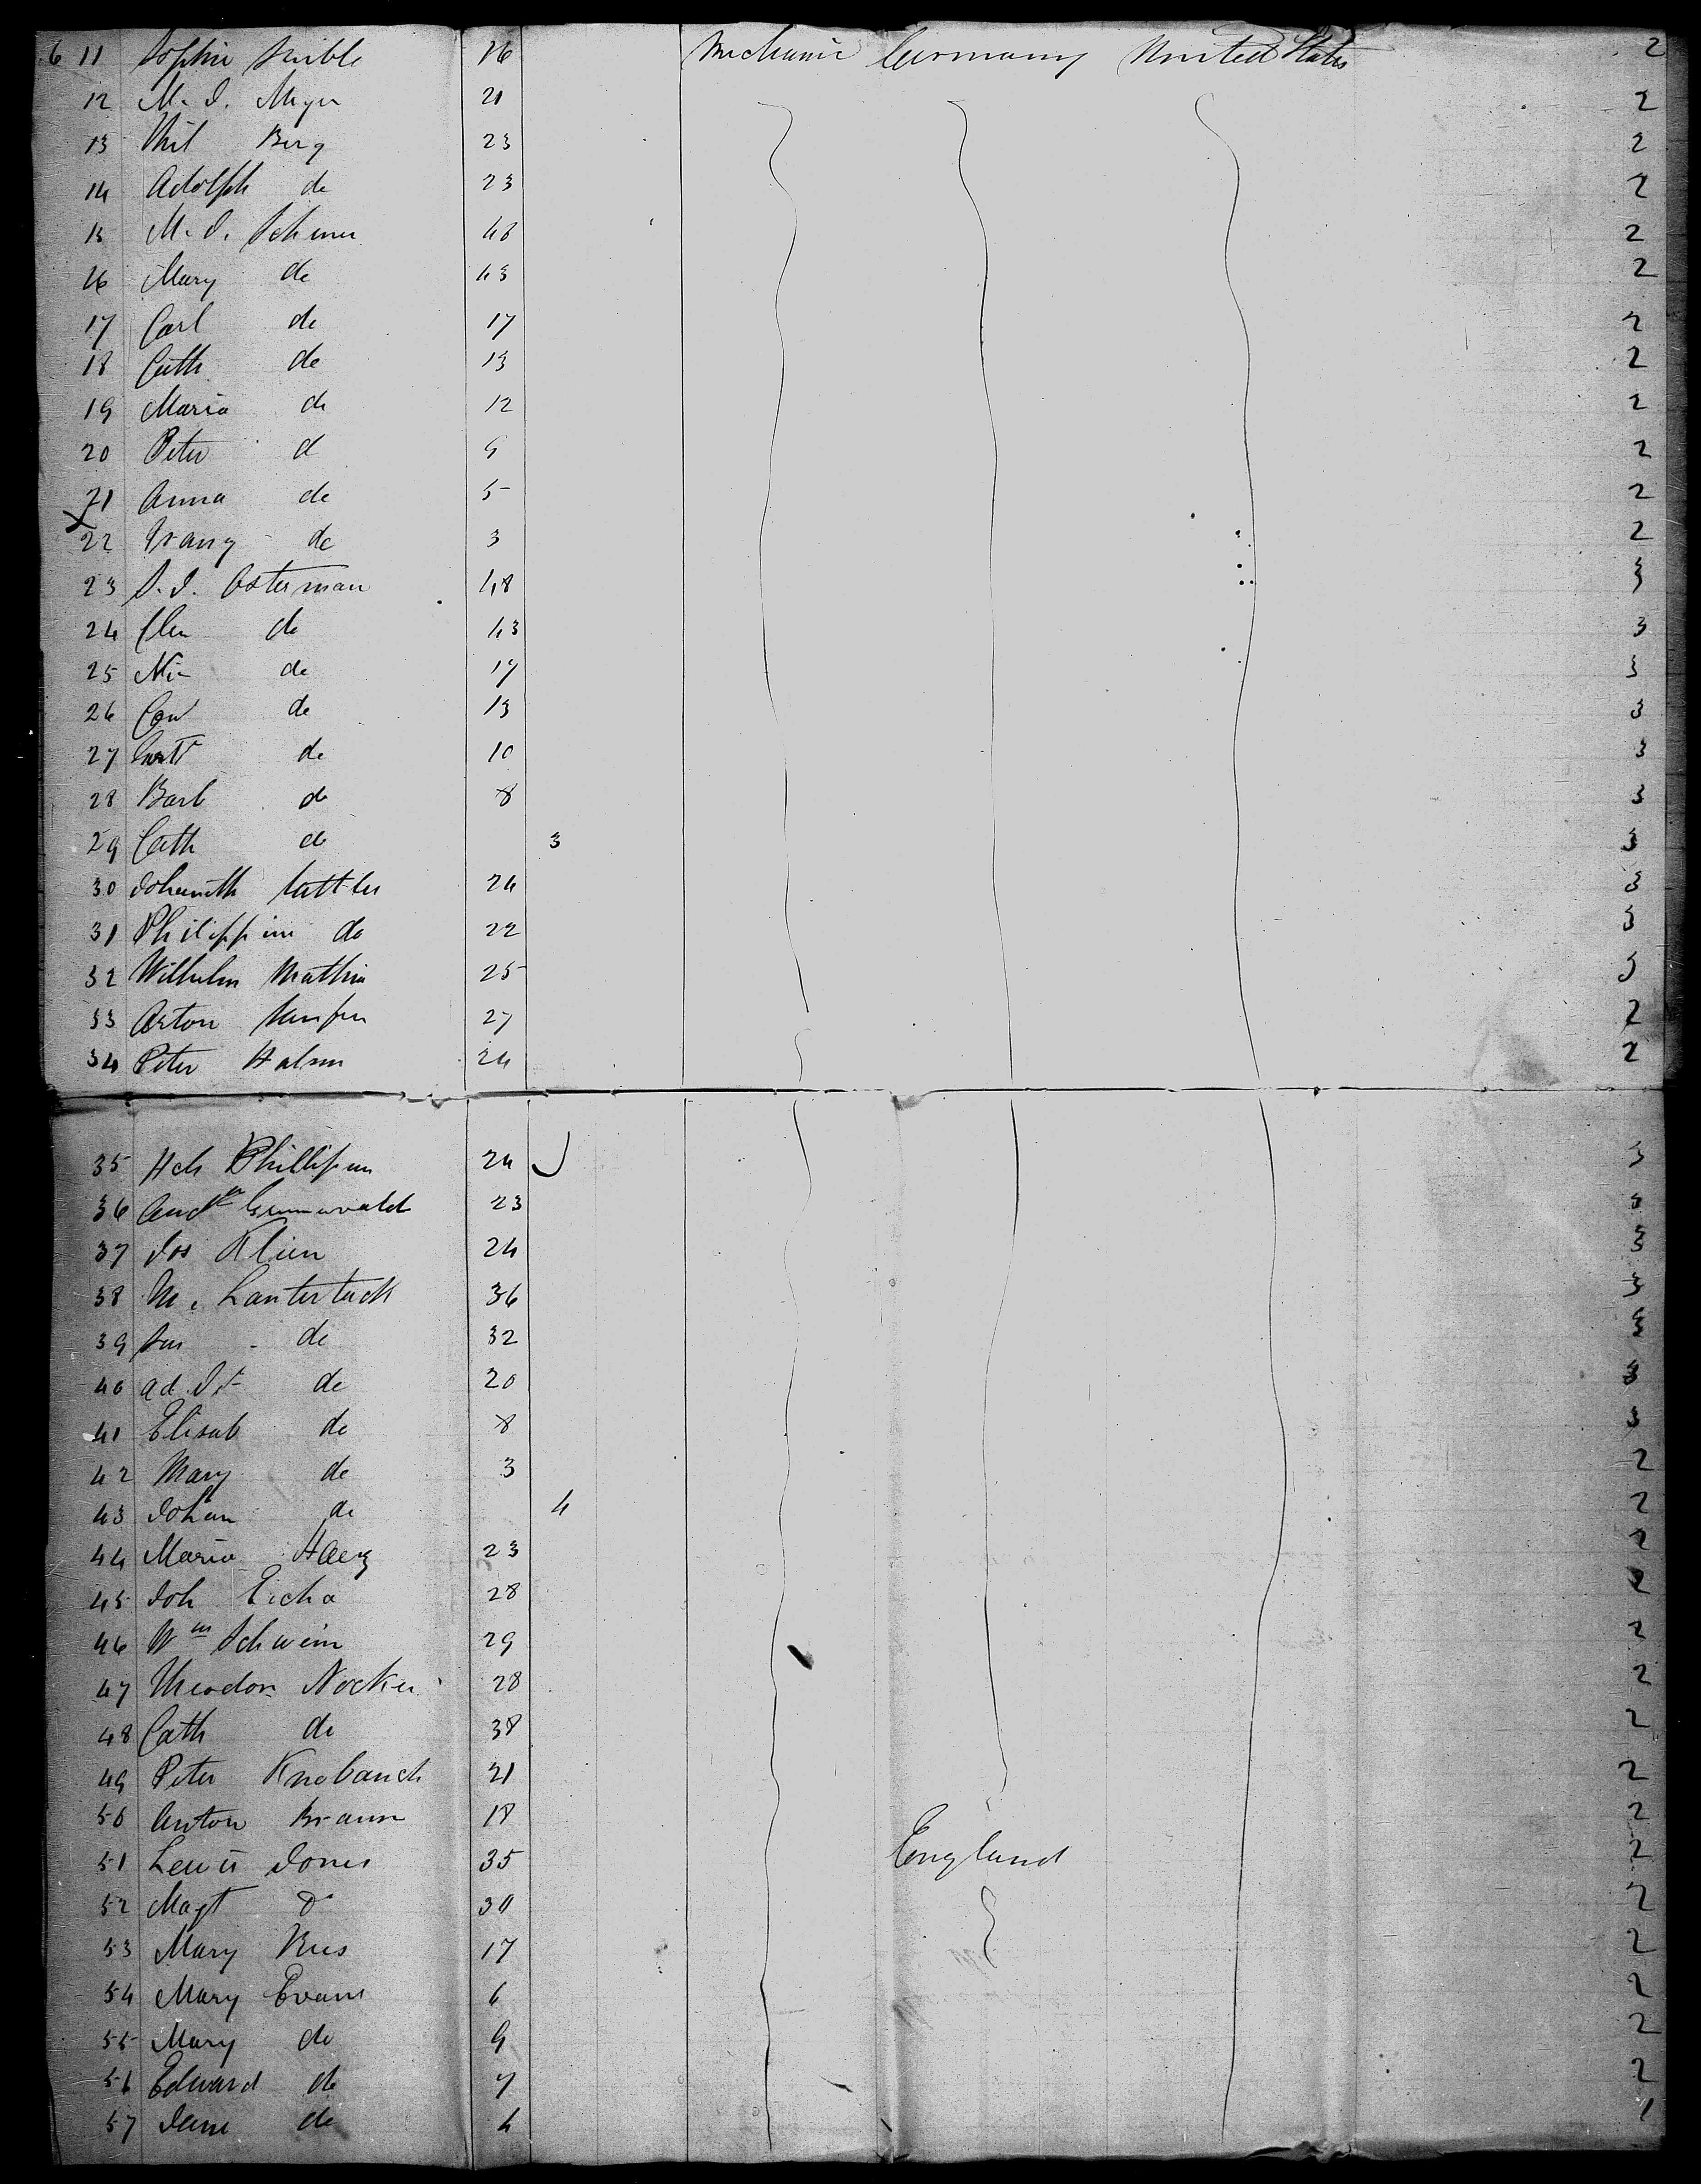 6 11 Sophie Stribble 16 Mechanic Germany United States 2
12 M. J. Meyer 21 2
13 Phil Berg 23 2
14 Adolph do 23 2
15 M. J. Schener 48 2
16 Mary do 43 2
17 Carl do 17 2
18 Cath do 13 2
19 Maria do 12 2
20 Peter d 9 2
21 Anna do 5 2
22 Franz do 3 2
23 S. J. Osterman 48 3
24 do 43 3
25 Nic do 17 3
26 do 13 3
27 do 10 3
28 Barb do 8 3
29 Cath do 3 3
30 24 3
31 Philippine do 22 3
32 Wilhelm Mathia 25 3
33 27 2
34 Peter Halsen 24 2
35 Hch Phillipson 24 3
36 Grunewald 23 3
37 Jos Klien 24 3
38 M. Lanterbach 36 3
39 Sus do 32 3
40 ad. do 20 3
41 Elisab do 8 3
42 Mary do 3 2
43 Johan do 4 2
44 Maria 23 2
45 Joh Eicha 28 2
46 Wm Schwein 29 2
47 Theodor Nocker 28 2
48 Cath do 38 2
49 Peter Knobauch 21 2
50 Anton Braun 18 2
51 Lewis Jones 35 England 2
52 Magt Do 30 2
53 Mary Rees 17 2
54 Mary Evans 6 2
55 Mary do 9 2
56 Edward do 7 2
57 Jane do 4 1